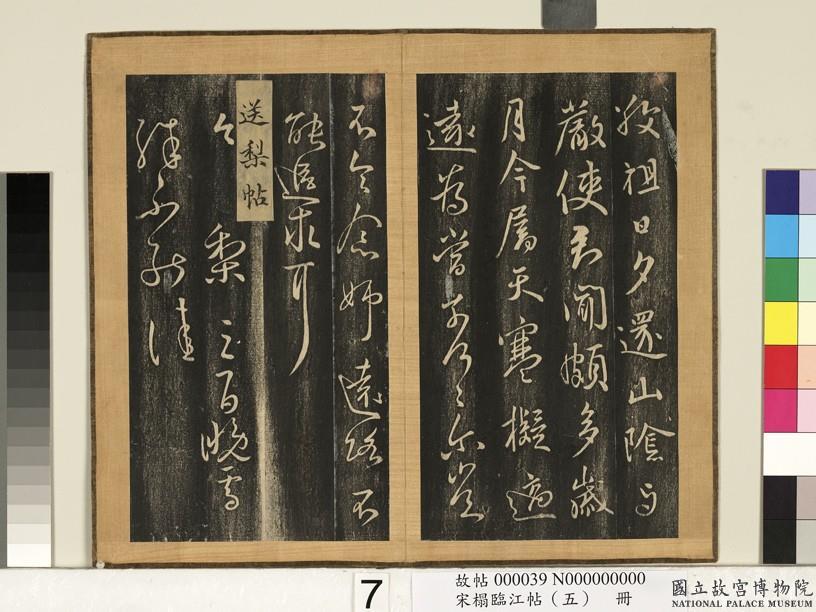 敬祖日夕還山陰與
嚴使君聞頗多歲
月今屬天寒擬適
遠為當奈何々尒豈
不令念姉遠路不
能追求耳
送梨帖
今 梨三百晚雪
殊不能佳
7
故帖 000039 N000000000
宋榻臨江帖（五） 冊
國立故宮博物院
NATIONAL PALACE MUSEUM